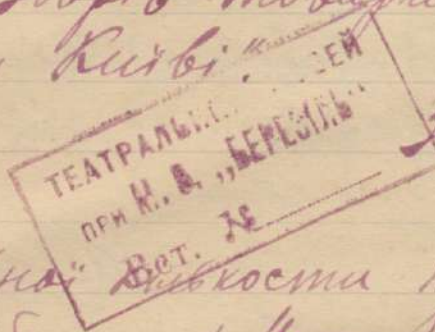 Київі."
ТЕАТРАЛЬН... ...ЗЕЙ
при М. О. „БЕРЕЗІЛЬ"
Вст. №
ної кількости